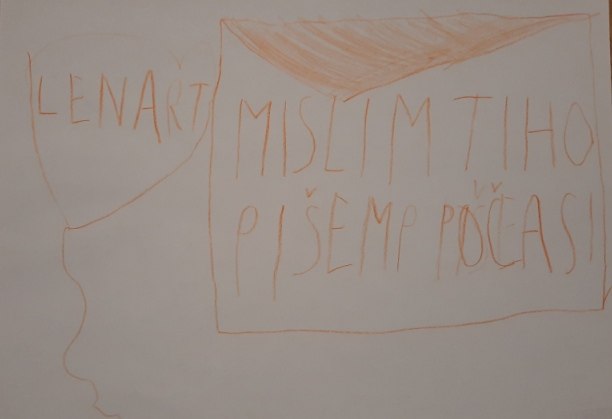 LENART
MISLIM TIHO
PIŠEM POČASI